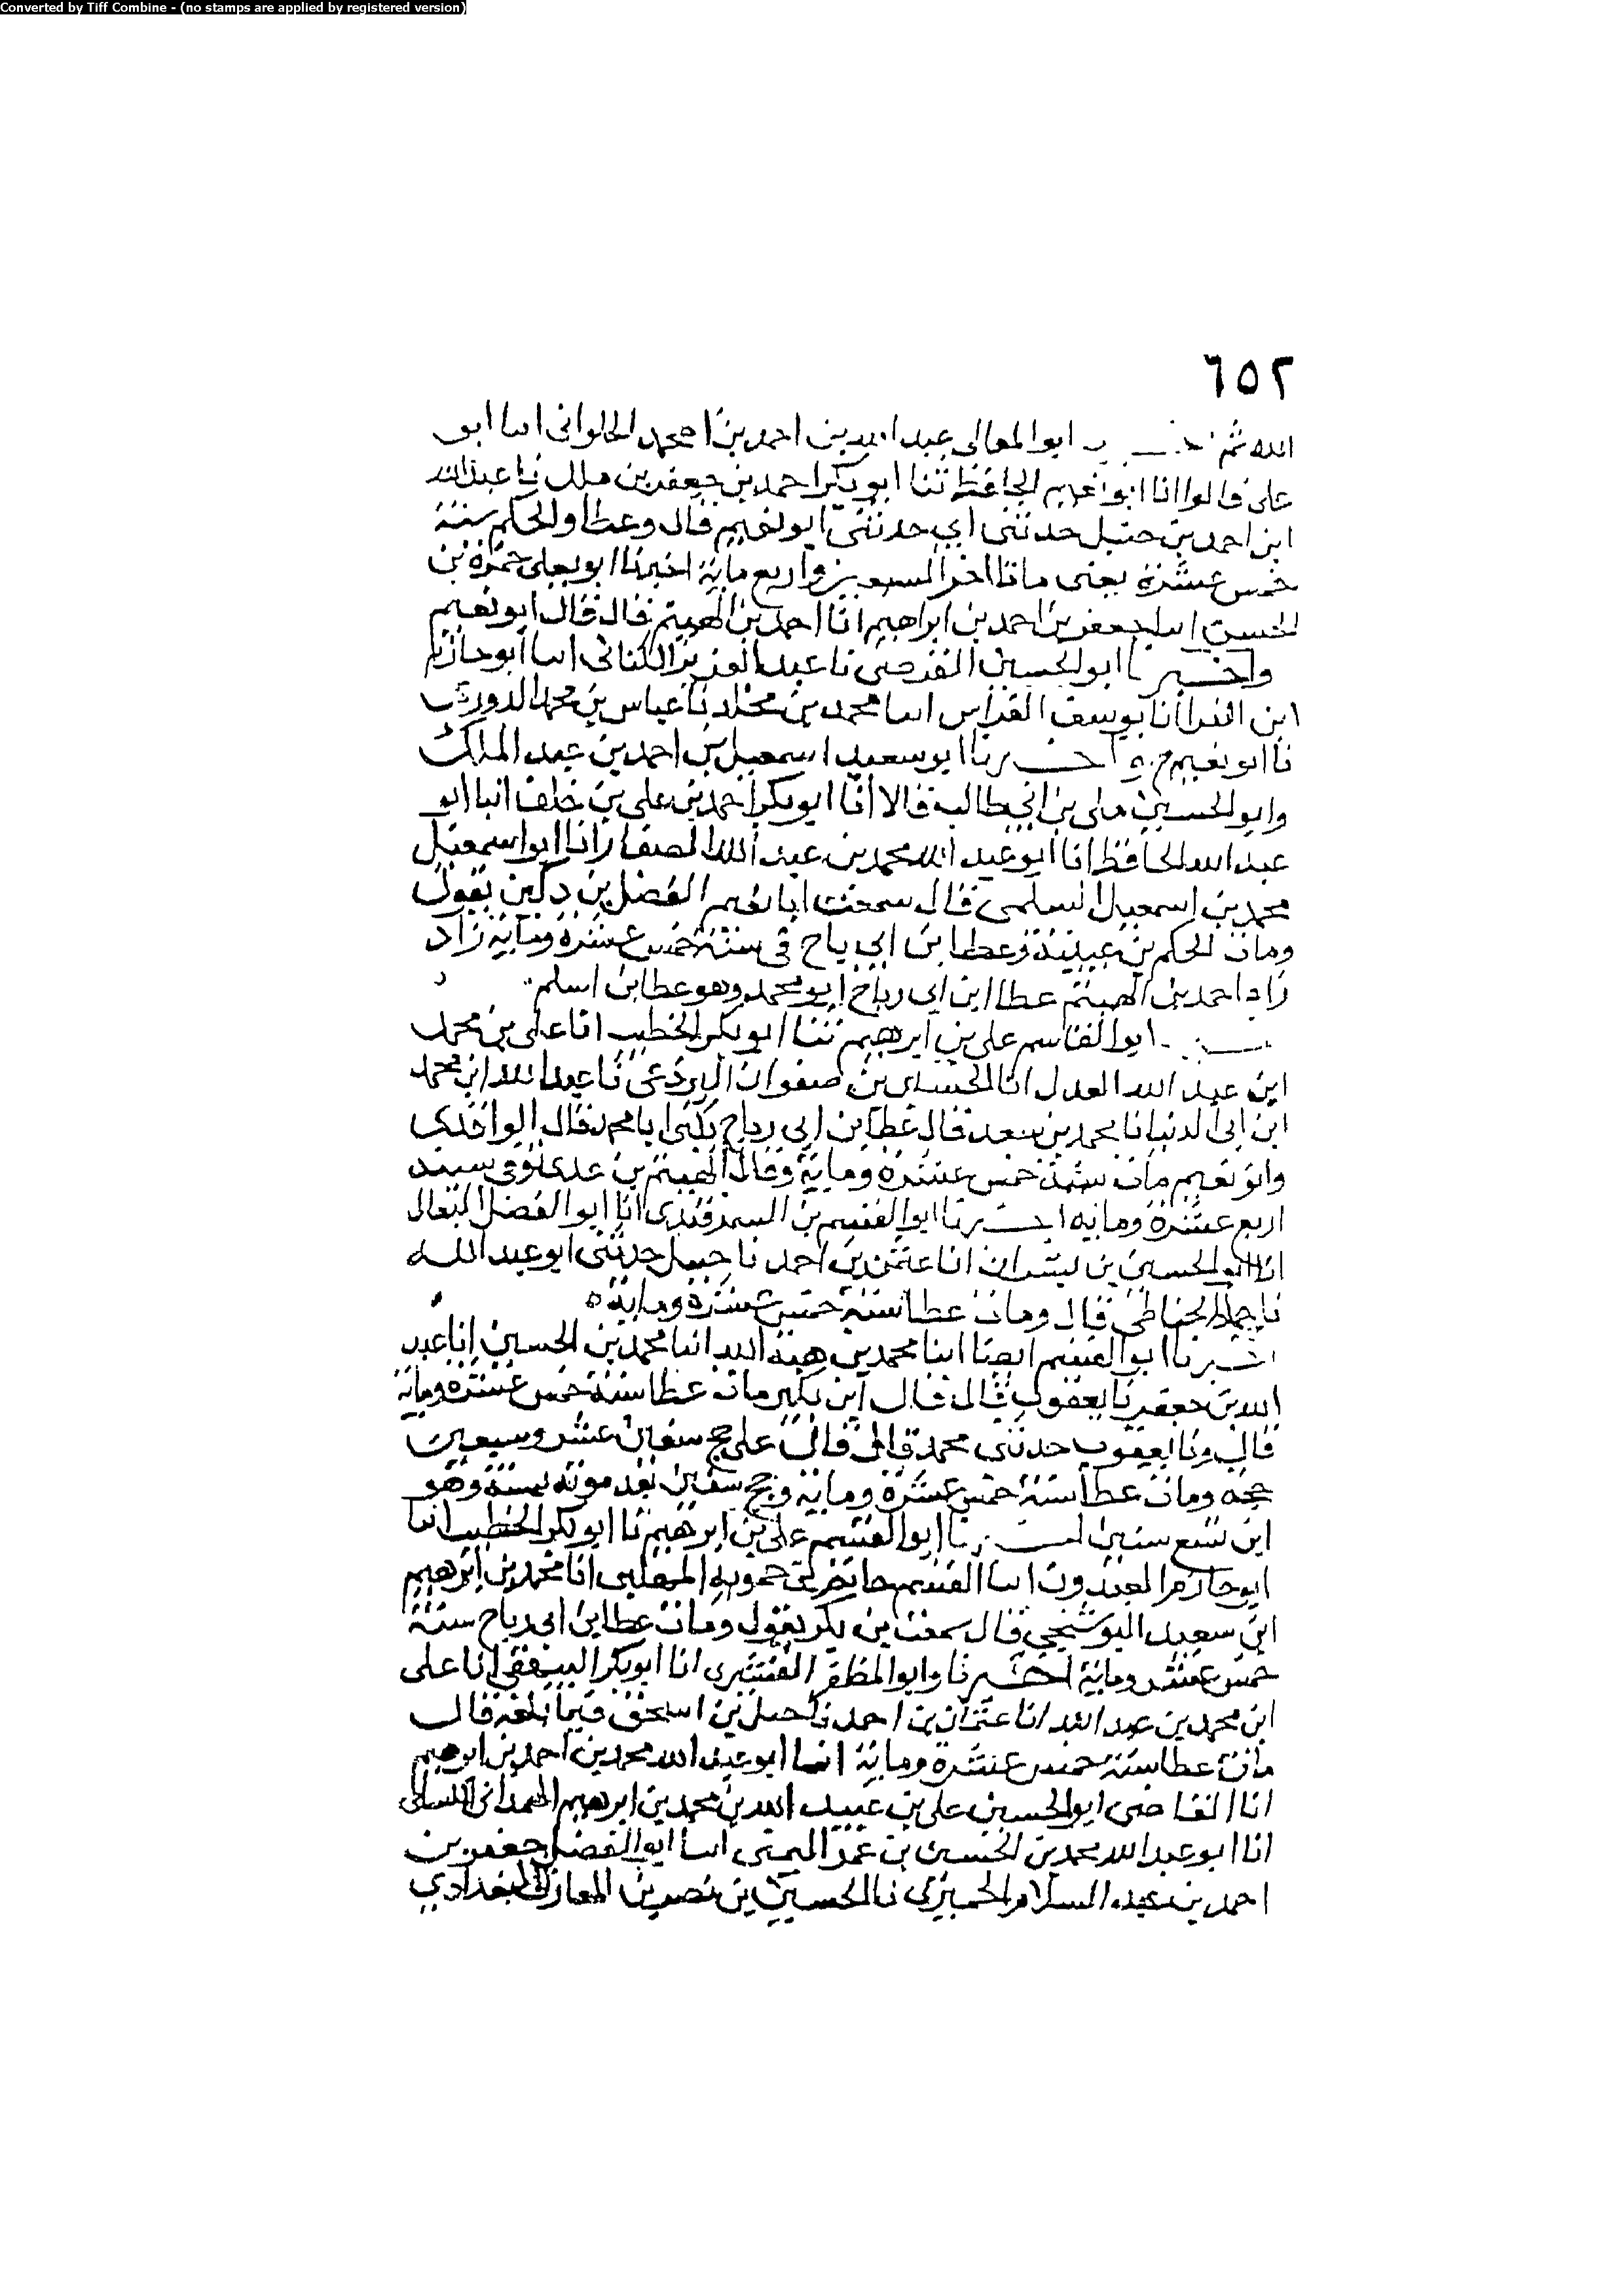 Converted by Tiff Combine - (no stamps are applied by registered version)
٦٥٢
الله ثم ابو المعالى عبد الله بن احمد بن محمد الحلوانى انبا ابو
على قالوا انا ابو نعيم الحافظ ثنا ابو بكر احمد بن جعفر بن ملك نا عبد الله
ابن احمد بن حنبل حدثنى ابي حدثنى ابو نعيم قال وعطا والحكم سنة
خمس عشرة يعنى ماتا اخر السبعين واربع ماية اخبرنا ابو يعلى حمزة بن
الحسن انبا جعفر بن احمد بن ابراهيم انا احمد بن الهيثم قال قال ابو نعيم
واخبرنا ابو الحسين الفرضى نا عبد العزيز الكتانى انبا ابو حازم
ابن الفرا انا يوسف القواس انبا محمد بن مخلد نا عباس بن محمد الدوري
نا ابو نعيم ح واخبرنا ابو سعيد اسمعيل بن احمد بن عبد الملك
وابو الحسين مكى بن ابي طالب قالا انا ابو بكر احمد بن على بن خلف انبا ابو
عبد الله الحافظ انا ابو عبد الله محمد بن عبد الله الصفار انا ابو اسمعيل
محمد بن اسمعيل السلمى قال سمعت ابا نعيم الفضل بن دكين يقول
ومات الحكم بن عيينة وعطا بن ابي رباح فى سنة خمس عشرة وماية زاد
زاد احمد بن الهيثم عطا ابن ابى رباح ابو محمد وهو عطا بن اسلم
ابو القاسم على بن ابرهيم ثنا ابو بكر الخطيب انا على بن محمد
ابن عبد الله العدل انا الحسين بن صفوان البرذعى نا عبد الله ابن محمد
ابن ابى الدنيا نا محمد بن سعد قال عطا بن ابى رباح يكنى ابا محمد قال الواقدى
وابو نعيم مات سنة خمس عشرة وماية وقال الهيثم بن عدى توفى سنة
اربع عشرة وماية اخبرنا ابو القسم بن السمرقندى انا ابو الفضل البقال
انا ابو الحسين بن بشران انا عثمن بن احمد نا حنبل حدثنى ابو عبد الله
نا حماد الخياطى قال ومات عطا سنة خمس عشرة وماية ه
اخبرنا ابو القسم ايضا انبا محمد بن هبة الله انبا محمد بن الحسين انا عبد
الله بن جعفر نا يعقوب قال قال ابن بكير مات عطا سنة خمس عشرة وماية
قال ونا يعقوب حدثنى محمد قال قال على حج سفين عشر وسبعين
حجه ومات عطا سنة خمس عشرة وماية وحج سفين بعد موته بسنة وهو
ابن تسع سنين اخبرنا ابو القسم على بن ابرهيم نا ابو بكر الخطيب انبا
ابو حازم العبدوى انبا القسم بن حمويه المهلبى انا محمد بن ابرهيم
ابن سعيد البوشنجي قال سمعت بن بكير يقول ومات عطا بن ابى رباح سنة
خمس عشر وماية اخبرنا وابو المظفر القشيرى انا ابو بكر البيهقى انا على
ابن محمد بن عبد الله انا عثمان بن احمد نا حنبل بن اسحق فيما بلغه قال
مات عطا سنة خمس عشرة وماية انبا ابو عبد الله محمد بن احمد بن ابرهيم
انا القاضى ابو الحسين على بن عبيد الله بن محمد بن ابرهيم الهمدانى
انا ابو عبد الله محمد بن الحسين بن عمر اليمنى انبا ابو الفضل جعفر بن
احمد بن عبد السلام الحميري نا الحسين بن نصر بن المعارك البغدادي